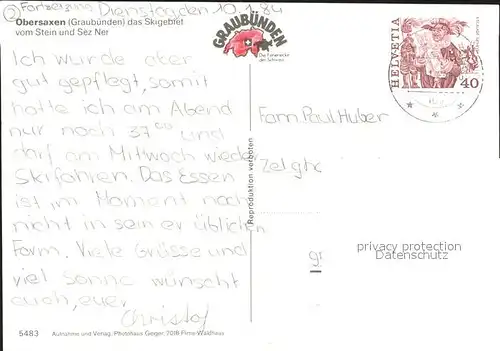 ② Fortsetzung Dienstag den 10.1.84
Obersaxen (Graubünden) das Skigebiet
vom Stein und Sèz Ner
Ich wurde aber
gut gepflegt, somit
hatte ich am Abend
nur noch 37°° und
darf am Mittwoch wieder
Skifahren. Das Essen
ist im Moment noch
nicht in seiner üblichen
Form. Viele Grüsse und
viel Sonne wünscht
euch, euer
Christof
5483 Aufnahme und Verlag: Photohaus Geiger, 7018 Flims-Waldhaus
GRAUBÜNDEN
Die Ferienecke
der Schweiz
Reproduktion verboten
HELVETIA
40
Fam. Paul Huber
Zelgh
privacy protection
DelcampeVendors